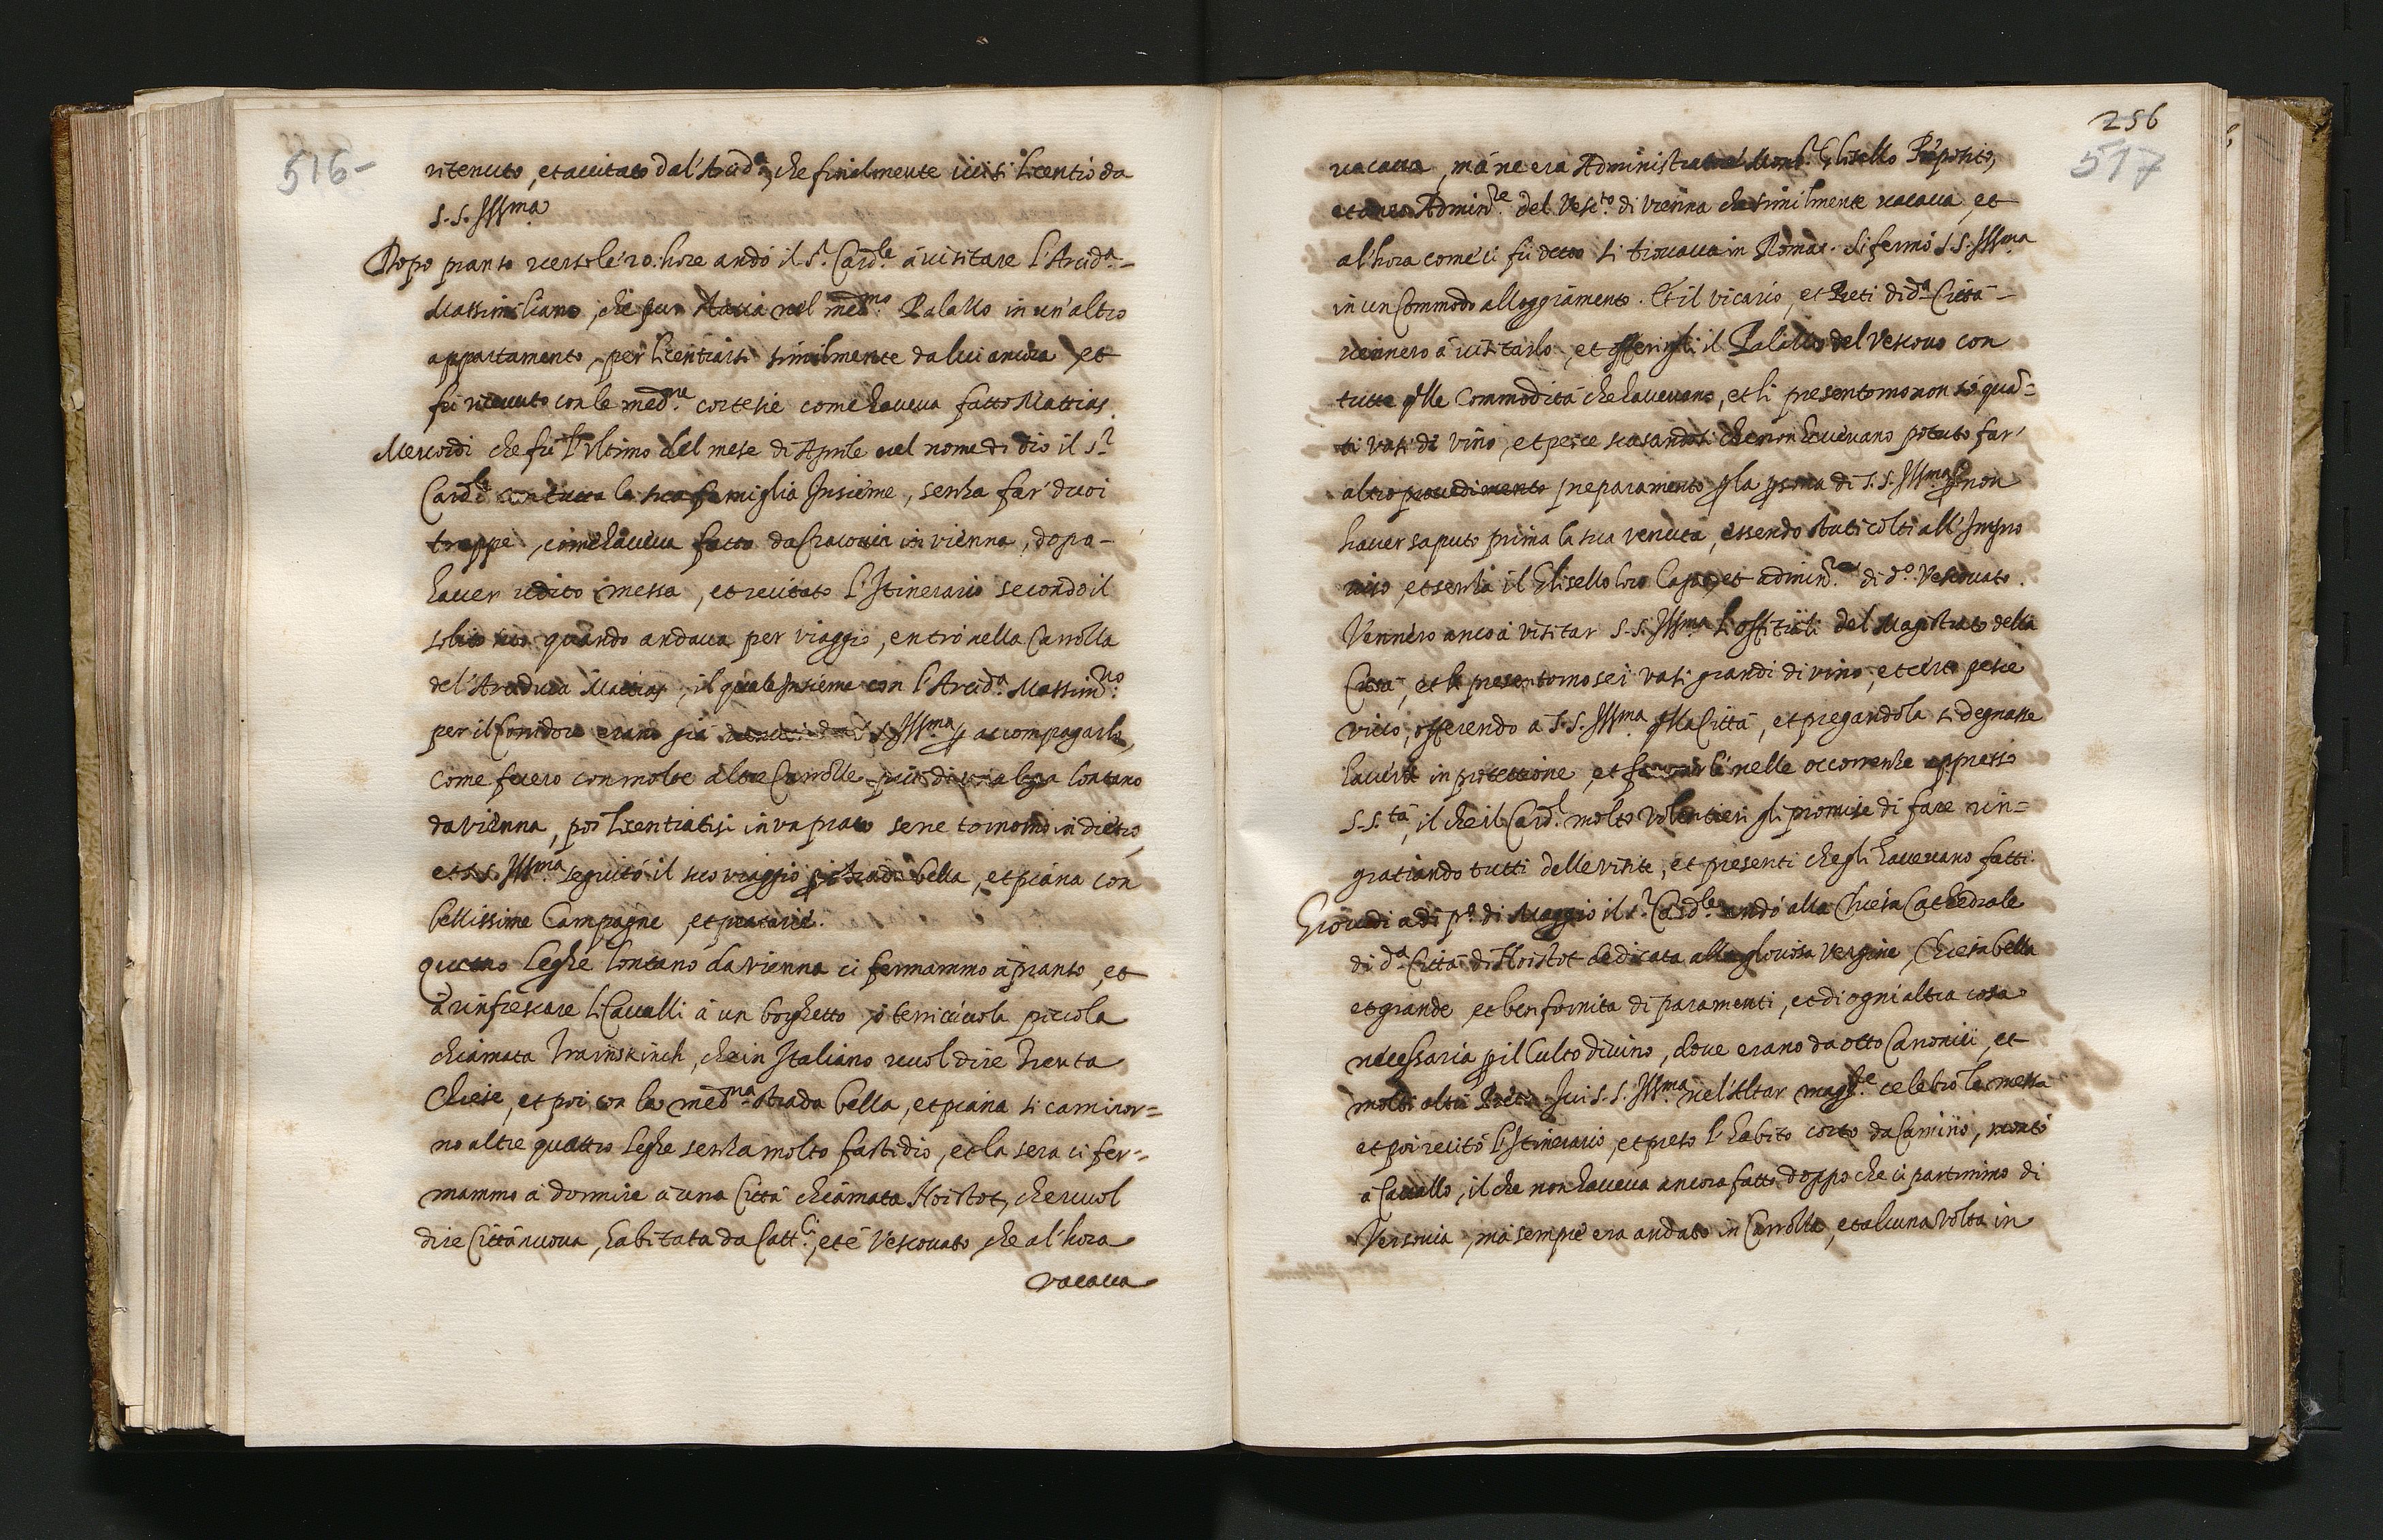 516-
ritenuto, et accitato dal'Arcid.ª, che finalmente ivi si licentiò da
S. S. Ill.ma
Dopo pranso verso le 20. hore andò il S.r Card.le à visitare l'Arcid.ª
Massimiliano, che pur stava nel med.mo Palazzo in un'altro
appartamento, per licentiarsi similmente da lui ancora, et
fù ricevuto con le med.me cortesie come haveva fatto Mattias.
Mercordì che fù l'ultimo del mese di Aprile nel nome di Dio il S.r
Card.le con tutta la sua famiglia Insieme, senza far' duoi
troppe, come haveva fatto da Cracovia in vienna, dopo
haver udito messa, et recitato l'Itinerario secondo il
solito suo quando andava per viaggio, entrò nella Carrozza
del'Arciduca Mattias, il quale Insieme con l'Arcid.ª Massim.no
per il Corridore erano già S. S. Ill.ma p accompagarlo,
come fecero con molte altre Carrozze più di una lega lontano
da vienna, poi licentiatisi in un prato se ne tornorno in dietro,
et S. S. Ill.ma seguitò il suo viaggio p strada bella, et piana con
bellissime Campagne, et pratarie.
quattro leghe lontano da vienna ci fermammo à pranso, et
à rinfrescare li Cavalli à un borghetto, ò terricciuola piccola
chiamata Trainskirch, che in Italiano vuol dire Trenta
Chiese, et poi con la med.ma strada bella, et piana si caminor=
no altre quattro leghe senza molto fastidio, et la sera ci fer=
mammo à dormire à una Città chiamata Noistot, che vuol
dire Città nuova, habitata da Catt.ci, et è Vescovato, che al'hora
vacava
256
517
vacava, mà ne era Administratore Mons.r Glisello Preposito,
et anco Admin.re del Vesc.to di vienna che similmente vacava, et
al'hora come ci fù detto si trovava in Roma. Si fermò S. S. Ill.ma
in un Commodo alloggiamento. Et il vicario, et Preti di d.ª Città
vennero à visitarlo, et offerirgli il Palazzo del Vescovo con
tutte qlle Commodità che havevano, et li presentorno non sò quan=
ti vasi di vino, et pesce scusandosi che non havevano potuto far'
altro provedimento preparamento p la psona di S. S. Ill.ma p non
haver saputo prima la sua venuta, essendo stati colti all'Impro
viso, et senza il Glisello loro Capo, et admin.re di d.o Vescovato.
Vennero anco à visitar S. S. Ill.ma li offitiali del Magistrato della
Città, et li presentorno sei vasi grandi di vino, et certo pesce
vivo, offerendo à S. S. Ill.ma qlla Città, et pregandola si degnasse
haverla in protettione, et favorirle nelle occorrenze appresso
S. S.tà, il che il Card.l molto volentieri gli promise di fare rin=
gratiando tutti delle visite, et presenti che gli havevano fatti.
Giovedi adi p.o di Maggio il S.r Card.le andò alla Chiesa Cathedrale
di d.ª Città di Noistot dedicata alla gloriosa Vergine, Chiesa bella
et grande, et ben fornita di paramenti, et di ogni altra cosa
necessaria p il Culto divino, dove erano da otto Canonici, et
molti altri Preti. Ivi S. S. Ill.ma nel'Altar magg.re celebrò la messa
et poi recitò l'Itinerario, et preso l'habito corto da Camino, montò
à Cavallo, il che non haveva ancora fatto doppo che ci partimmo di
Versovia, mà sempre era andato in Carrozza, et alcuna volta in